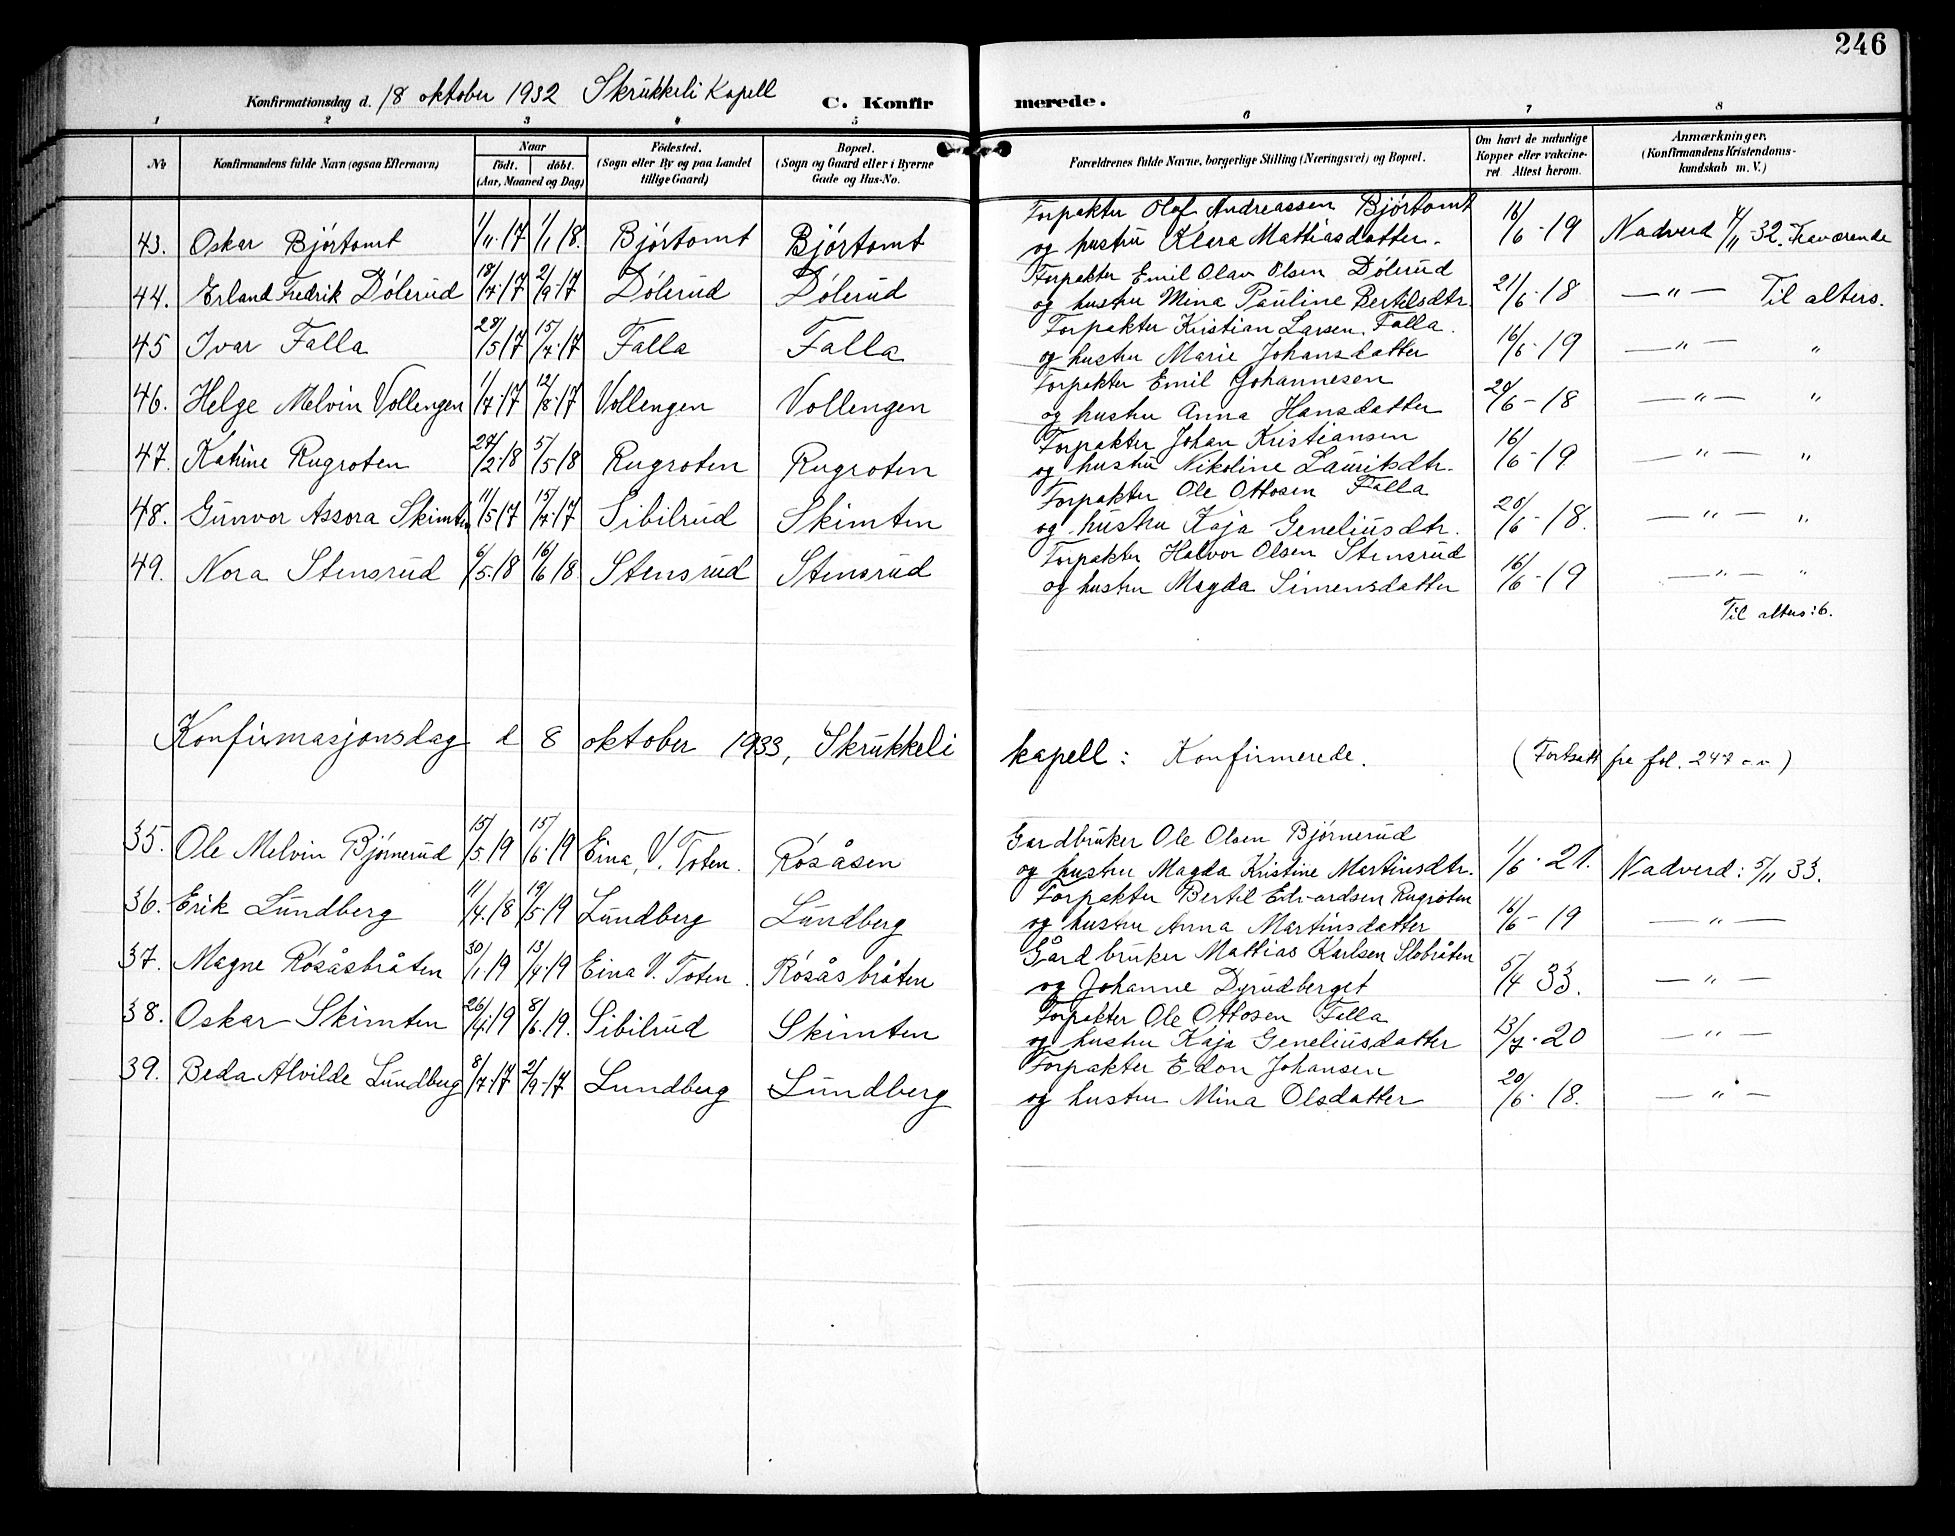 246
Konfirmationsdag d. 18 oktober 1932 Skrukkeli Kapell C. Konfirmerede.
1 2 3 4 5 6 7 8
No Konfirmandens fulde Navn (ogsaa Efternavn) Naar födt. döbt. (Aar, Maaned og Dag) Födested. (Sogn eller By og paa Landet tillige Gaard) Bopæl. (Sogn og Gaard eller i Byerne Gade og Hus-No. Forældrenes fulde Navne, borgerlige Stilling (Næringsvei) og Bopæl. Om havt de naturlige Kopper eller vakcineret. Attest herom. Anmærkninger. (Konfirmandens Kristendomskundskab m. V.)
Forpakter Olaf Andreassen Bjørtomt
43. Oskar Bjørtomt 1/11.17 1/1 18. Bjørtomt Bjørtomt og hustru Klara Mattiasdatter. 16/6-19 Nadverd 4/11-32. Fraværende
Forpakter Emil Olav Olsen Dølerud
44. Erland Fredrik Dølerud 18/7.17 2/9.17 Dølerud Dølerud og hustru Mina Pauline Bertelsdtr. 21/6.18 — " — Til alters.
Forpakter Kristian Larsen Falla.
45 Ivar Falla 28/5 17 15/7.17 Falla Falla og hustru Marie Johansdatter 16/6.19 — " — "
Forpakter Emil Johannesen
46. Helge Melvin Vollengen 1/7.17 12/8.17 Vollengen Vollengen og hustru Anna Hansdatter 20/6-18 — " — "
Forpakter Johan Kristiansen
47. Katrine Rugroten 27/2 18 5/5 18 Rugroten Rugroten og hustru Nikoline Lauritsdtr. 16/6-19 — " — "
Forpakter Ole Ottosen Falla
48. Gunvor Assora Skimten 11/5 17 15/7.17 Sibilrud Skimten og hustru Kaja Geneliusdtr. 20/6-18. — " — "
Forpakter Halvor Olsen Stensrud
49. Nora Stensrud 6/5.18 16/6 18 Stensrud Stensrud og hustru Magda Simensdatter 16/6-19 — " — "
Til alters: 6.
Konfirmasjonsdag d 8 oktober 1933, Skrukkeli kapell: Konfirmerede. (Fortsatt fra fol. 247)
Gardbruker Ole Olsen Bjørnerud
35. Ole Melvin Bjørnerud 15/5.19 15/6.19 Eina, V. Toten. Røsåsen og hustru Magda Kristine Martinsdtr. 1/6.21. Nadverd: 5/11 33.
Forpakter Bertil Edvardsen Rugroten
36. Erik Lundberg 11/4.18 19/5.19 Lundberg Lundberg og hustru Anna Martinsdatter 16/6-19 — " —
Gårdbruker Mattias Karlsen Slobråten
37. Magne Røsåsbråten 30/1.19 13/4.19 Eina V. Toten. Røsåsbråten og Johanne Dyrudberget 5/4 33. — " —
Forpakter Ole Ottosen Falla
38. Oskar Skimten 26/4.19 8/6.19. Sibilrud Skimten og hustru Kaja Geneliusdatter 13/7.20 — " —
Forpakter Edon Johansen
39. Beda Alvilde Lundberg 8/7.17 2/9-17 Lundberg Lundberg og hustru Mina Olsdatter 20/6.18. — " —